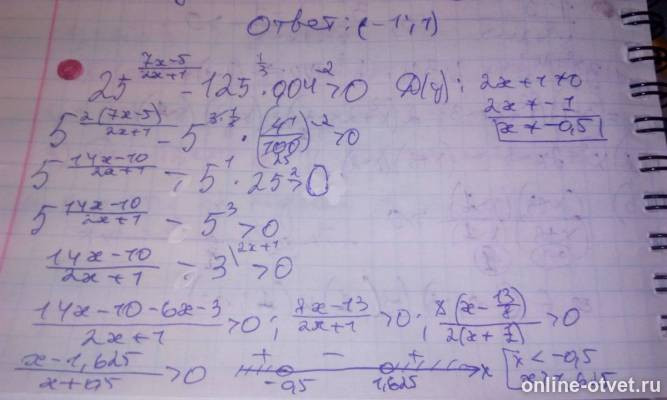 Ответ: (-1; 1)
25^((7x-5)/(2x+1)) - 125^(1/3) · 0,04^(-2) > 0   D(y): 2x+1≠0
2x≠-1
x≠-0,5
5^(2(7x-5)/(2x+1)) - 5^(3·1/3) · (4/100)^(-2) > 0
25
5^((14x-10)/(2x+1)) - 5^1 · 25^2 > 0
5^((14x-10)/(2x+1)) - 5^3 > 0
(14x-10)/(2x+1) - 3\^(2x+1) > 0
(14x-10-6x-3)/(2x+1) > 0; (8x-13)/(2x+1) > 0; 8(x-13/8)/2(x+1/2) > 0
(x-1,625)/(x+0,5) > 0   + - +   -0,5   1,625   x   [x < -0,5
online-otvet.ru